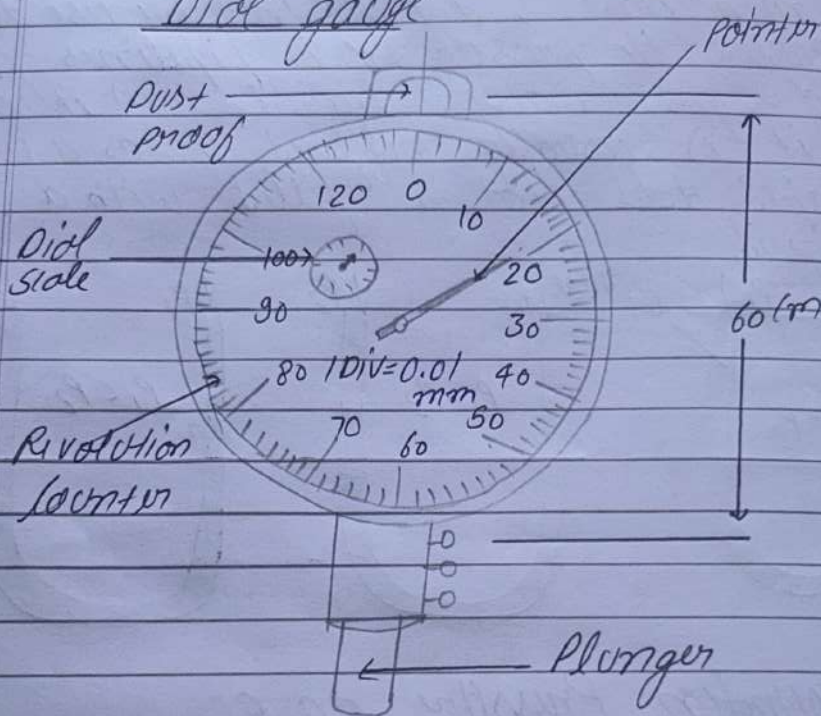 Dial gauge
Pointer
Dust
proof
120 0
10
Dial
scale
100
20
90
30
60 cm
80 1DIV=0.01 40
mm
50
70
60
Revolution
counter
Plunger